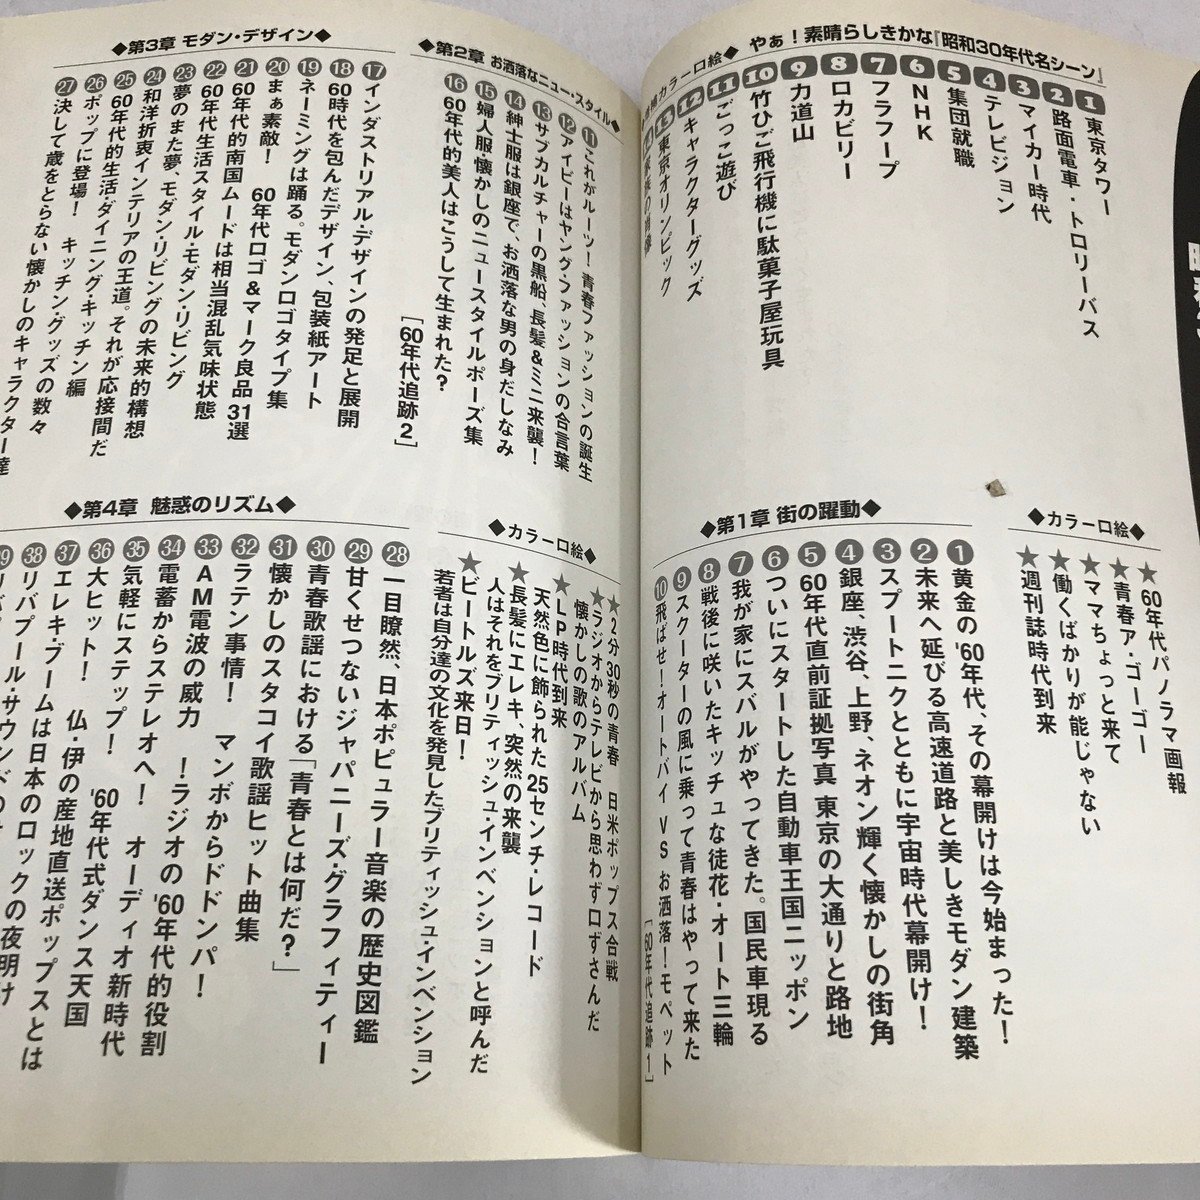 やぁ！素晴らしきかな『昭和30年代名シーン』
カラー口絵◆
1 東京タワー
2 路面電車・トロリーバス
3 マイカー時代
4 テレビジョン
5 集団就職
6 NHK
7 フラフープ
8 ロカビリー
9 力道山
10 竹ひご飛行機に駄菓子屋玩具
11 ごっこ遊び
12 キャラクターグッズ
13 東京オリンピック
◆カラー口絵◆
★'60年代パノラマ画報
★青春ア・ゴーゴー
★ママちょっと来て
★働くばかりが能じゃない
★週刊誌時代到来
◆第1章 街の躍動◆
1 黄金の'60年代、その幕開けは今始まった！
2 未来へ延びる高速道路と美しきモダン建築
3 スプートニクとともに宇宙時代幕開け！
4 銀座、渋谷、上野、ネオン輝く懐かしの街角
5 60年代直前証拠写真 東京の大通りと路地
6 ついにスタートした自動車王国ニッポン
7 我が家にスバルがやってきた。国民車現る
8 戦後に咲いたキッチュな徒花・オート三輪
9 スクーターの風に乗って青春はやって来た
10 飛ばせ！オートバイ VS お洒落！モペット
［'60年代追跡1］
◆第2章 お洒落なニュー・スタイル◆
11 これがルーツ！青春ファッションの誕生
12 アイビーはヤング・ファッションの合言葉
13 サブカルチャーの黒船、長髪&ミニ来襲！
14 紳士服は銀座で、お洒落な男の身だしなみ
15 婦人服・懐かしのニュースタイルポーズ集
16 60年代的美人はこうして生まれた？
［'60年代追跡2］
◆第3章 モダン・デザイン◆
17 インダストリアル・デザインの発足と展開
18 60時代を包んだデザイン、包装紙アート
19 ネーミングは踊る。モダンロゴタイプ集
20 まぁ素敵！ 60年代ロゴ&マーク良品31選
21 60年代的南国ムードは相当混乱気味状態
22 60年代生活スタイル・モダン・リビング
23 夢のまた夢、モダン・リビングの未来的構想
24 和洋折衷インテリアの王道。それが応接間だ
25 60年代的生活・ダイニング・キッチン編
26 ポップに登場！ キッチン・グッズの数々
27 決して歳をとらない懐かしのキャラクター達
◆カラー口絵◆
★2分30秒の青春 日米ポップス合戦
★ラジオからテレビから思わず口ずさんだ
懐かしの歌のアルバム
★LP時代到来
天然色に飾られた25センチ・レコード
★長髪にエレキ、突然の来襲
人はそれをブリティッシュ・インベンションと呼んだ
★ビートルズ来日！
若者は自分達の文化を発見したブリティッシュ・インベンション
◆第4章 魅惑のリズム◆
28 一目瞭然、日本ポピュラー音楽の歴史図鑑
29 甘くせつないジャパニーズ・グラフィティー
30 青春歌謡における「青春とは何だ？」
31 懐かしのスタコイ歌謡ヒット曲集
32 ラテン事情！ マンボからドドンパ！
33 AM電波の威力 ！ラジオの'60年代的役割
34 電蓄からステレオへ！ オーディオ新時代
35 気軽にステップ！ '60年代式ダンス天国
36 大ヒット！ 仏・伊の産地直送ポップスとは
37 エレキ・ブームは日本のロックの夜明け
38 リバプール・サウンドの